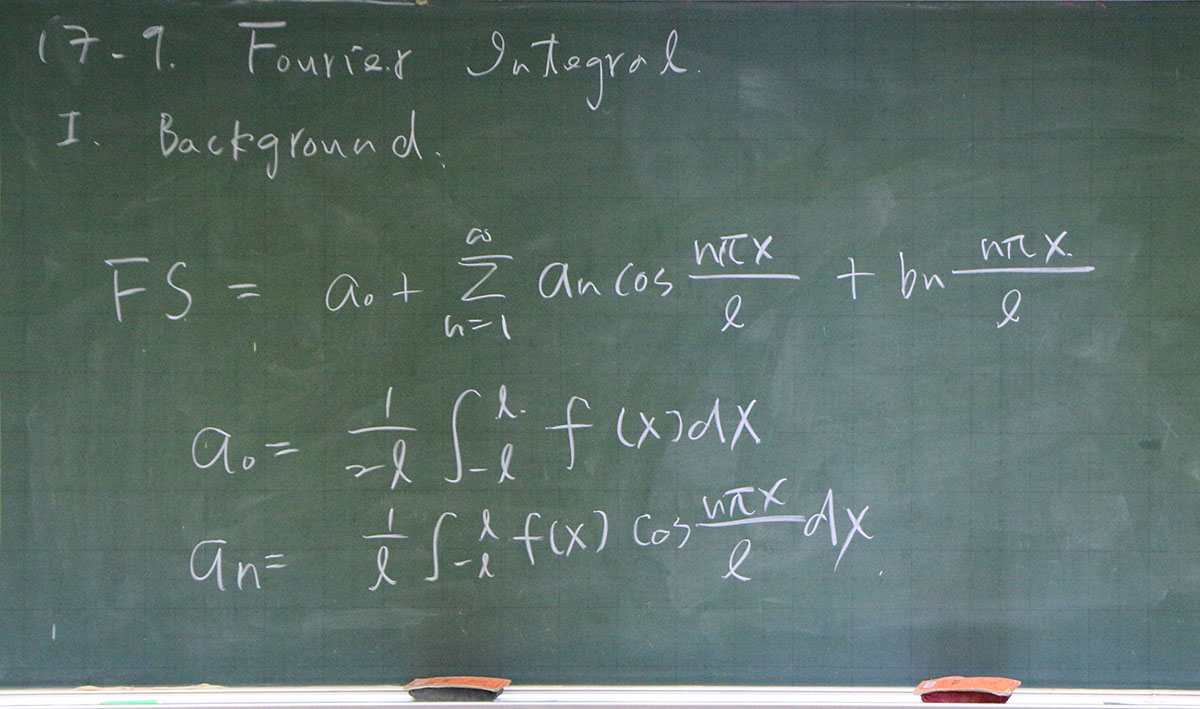 17-9. Fourier Integral.
I. Background.
FS = a₀ + ∞∑n=1 an cos nπx/l + bn nπx/l
a₀ = 1/2l ∫-l^l f(x)dx
an = 1/l ∫-l^l f(x) cos nπx/l dx.